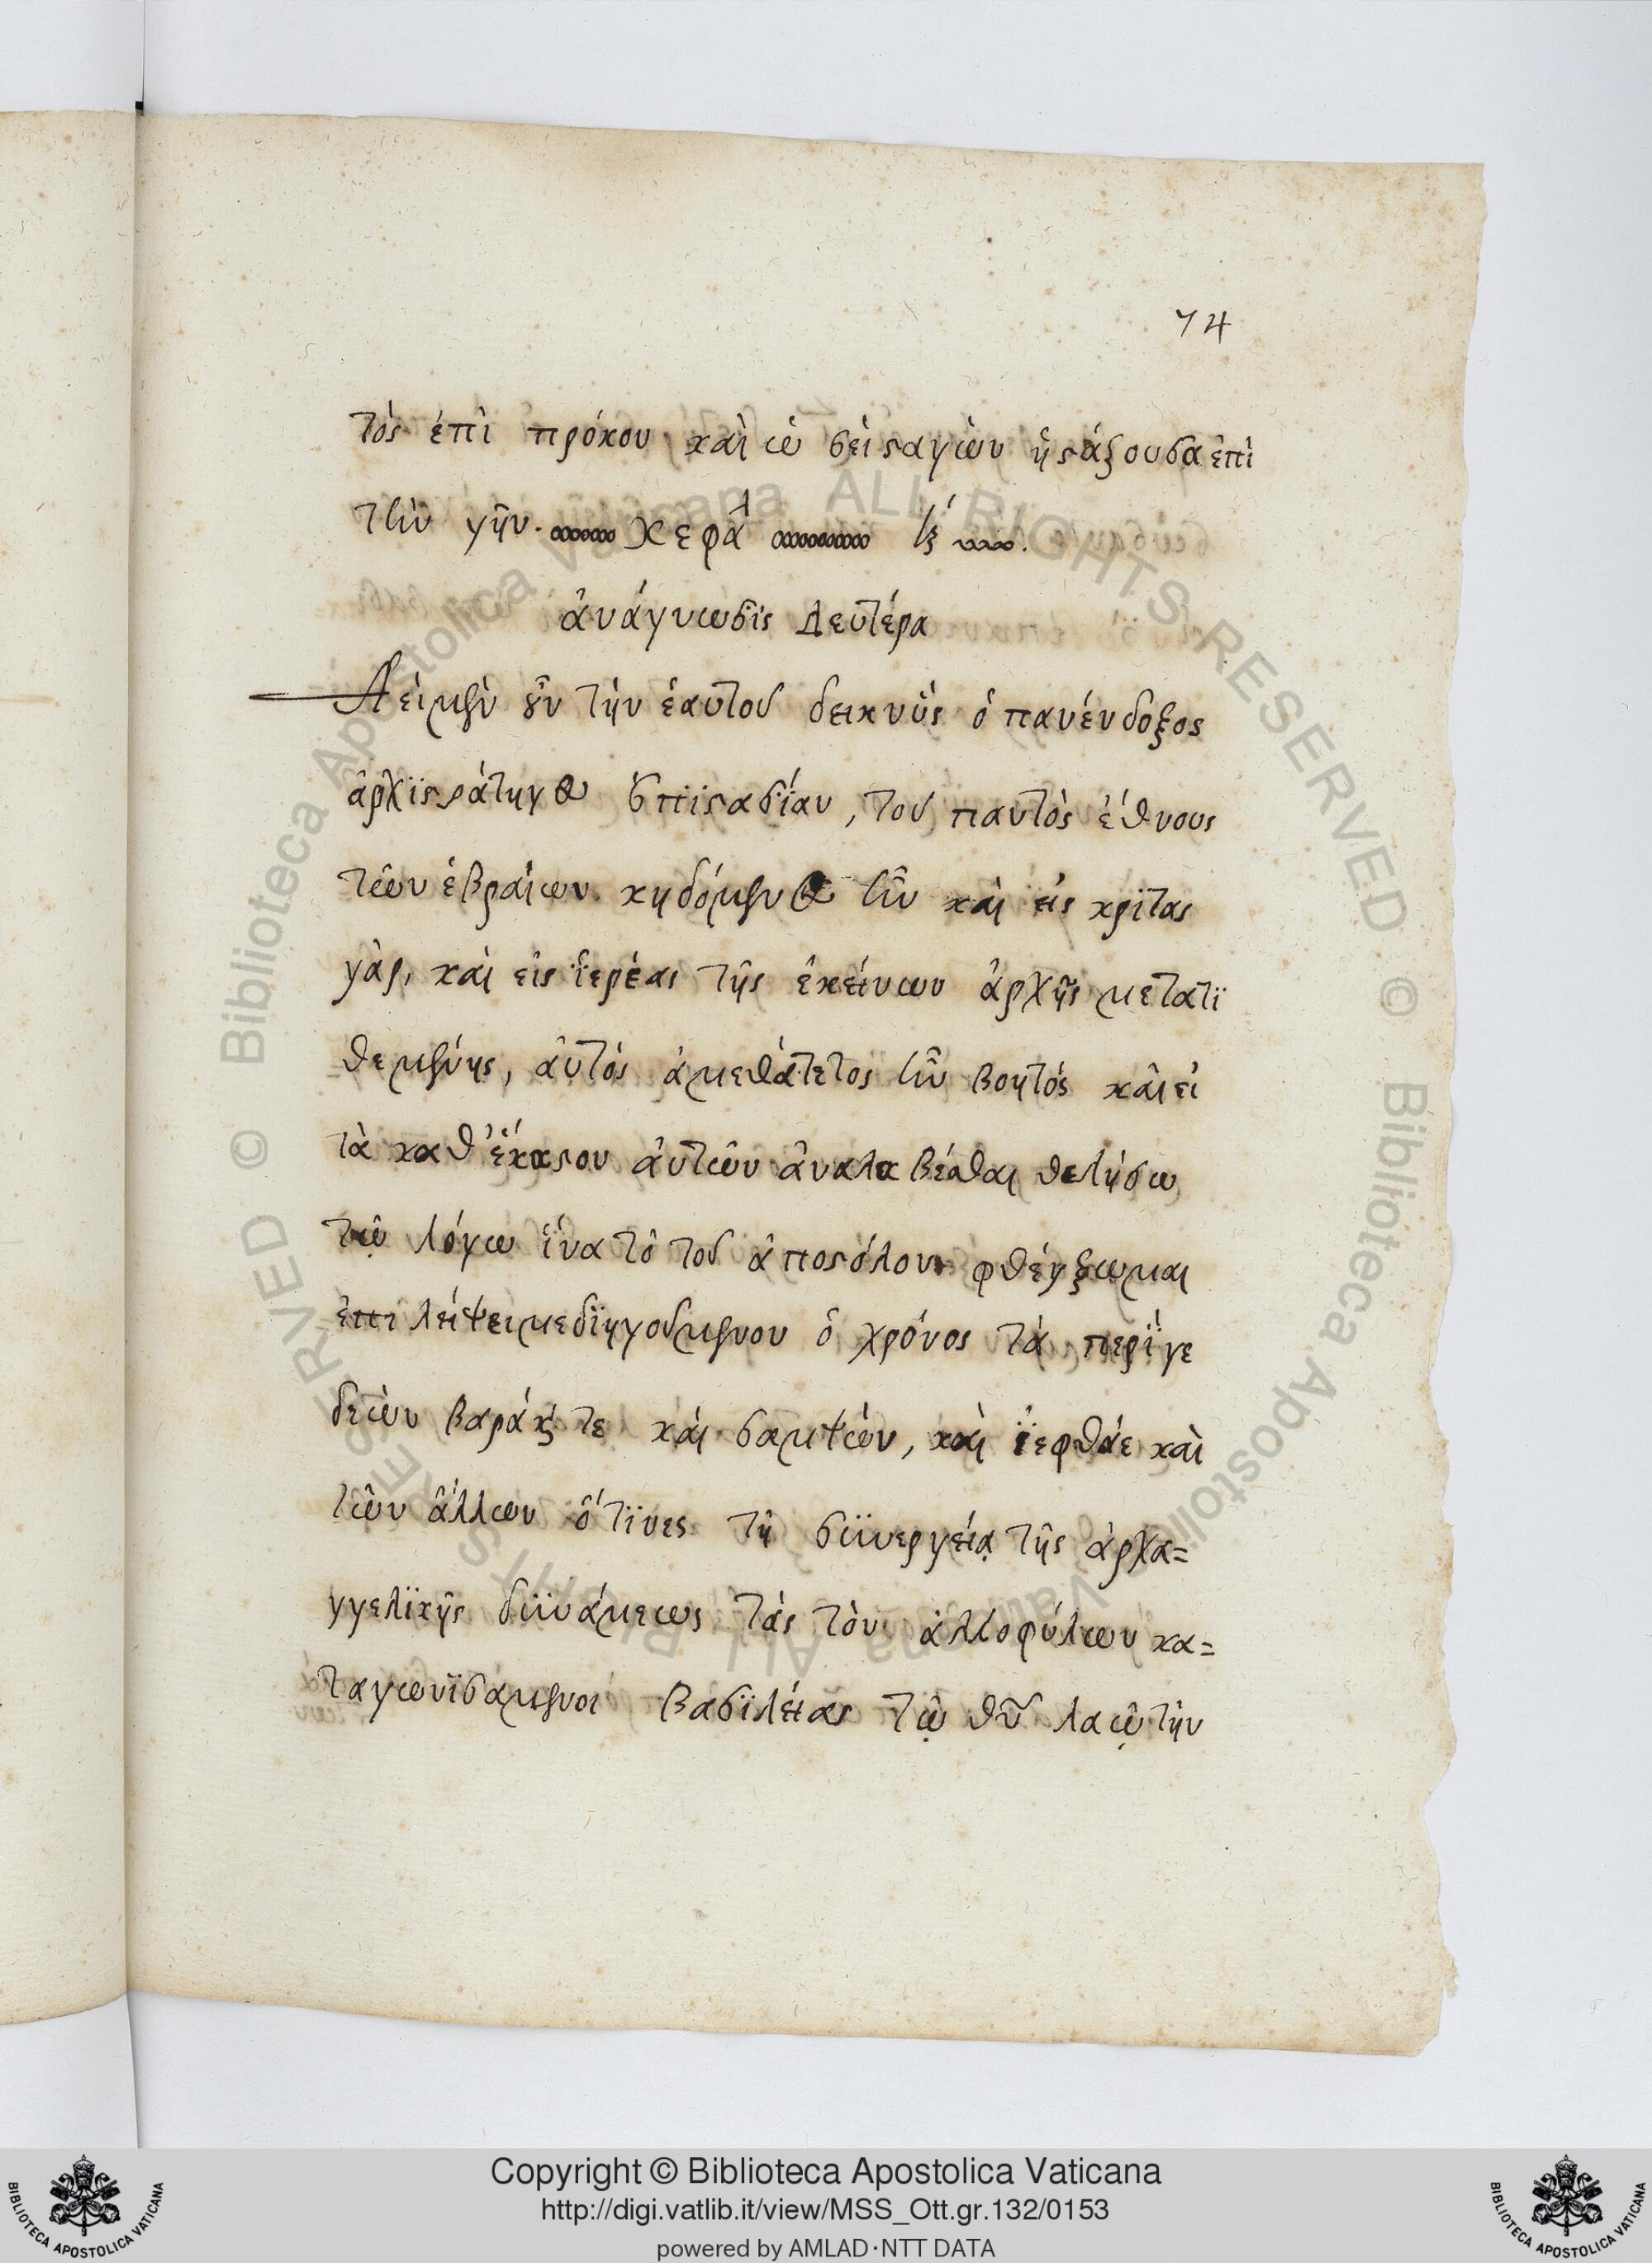 74
τὸς ἐπὶ πρόκου καὶ ὡ σεὶσαγὼν ἡστάζουσα ἐπὶ
τὴν γῆν. κεφά
ἀνάγνωσις Δευτέρα
Ἀεὶ μὲν οὖν τὴν ἑαυτοῦ δεικνὺς ὁ πανένδοξος
ἀρχϊστράτηγος ἐπϊστασίαν, τοῦ παντὸς ἔθνους
τῶν ἑβραίων κηδόμενος ἦν καὶ εἰς κρϊτας
γὰρ, καὶ εἰς ἱερέας τῆς ἐκείνων ἀρχῆς μετατϊ
θεμένης, αὐτὸς ἀμετάθετος ἦν βοητός καὶ εἰ
τὰ καθ' ἕκαστον αὐτῶν ἀναλαβέσθαι θελήσω
τῷ λόγω ἵνα τὸ τοῦ ἀποστόλου φθέγξωμαι
ἐπιλείψει με διηγούμενον ὁ χρόνος τὰ περὶ γε
δεὼν βαράκ τε καὶ σαμψών, καὶ ἰεφθάε καὶ
τῶν ἄλλων ὅτϊνες τῇ συνεργείᾳ τῆς ἀρχα=
γγελϊκῆς δυνάμεως τὰς τὸν ἀλλοφύλων κα=
ταγωνϊσάμενοι βασϊλείας τῷ θῦ λαῷ τὴν
Copyright © Biblioteca Apostolica Vaticana
http://digi.vatlib.it/view/MSS_Ott.gr.132/0153
powered by AMLAD·NTT DATA
BIBLIOTECA APOSTOLICA VATICANA
BIBLIOTECA APOSTOLICA VATICANA
© Biblioteca Apostolica Vaticana ALL RIGHTS RESERVED
© Biblioteca Apostolica Vaticana ALL RIGHTS RESERVED